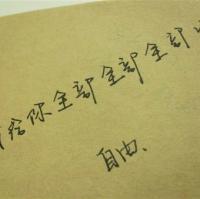 给你全部全部全部
自由、